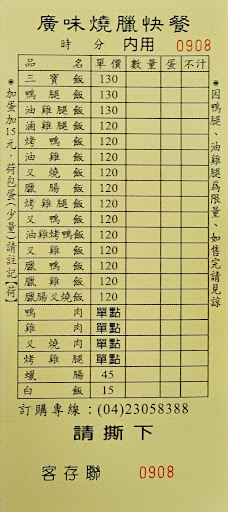 廣味燒臘快餐
時 分 內用 0908
品名 單價 數量 蛋 不汁
三寶飯 130
鴨腿飯 130
油雞腿飯 130
滷雞腿飯 120
烤鴨飯 120
油雞飯 120
叉燒飯 120
臘腸飯 120
烤雞腿飯 120
叉鴨飯 120
油雞烤鴨飯 120
叉雞飯 120
臘鴨飯 120
臘雞飯 120
臘腸叉燒飯 120
鴨肉 單點
雞肉 單點
叉燒肉 單點
烤雞腿 單點
蠟腸 45
白飯 15
◉加蛋加15元，荷包蛋(少量)請註記【荷】
◉因鴨腿、油雞腿為限量、如售完請見諒
訂購專線：(04)23058388
請撕下
客存聯 0908